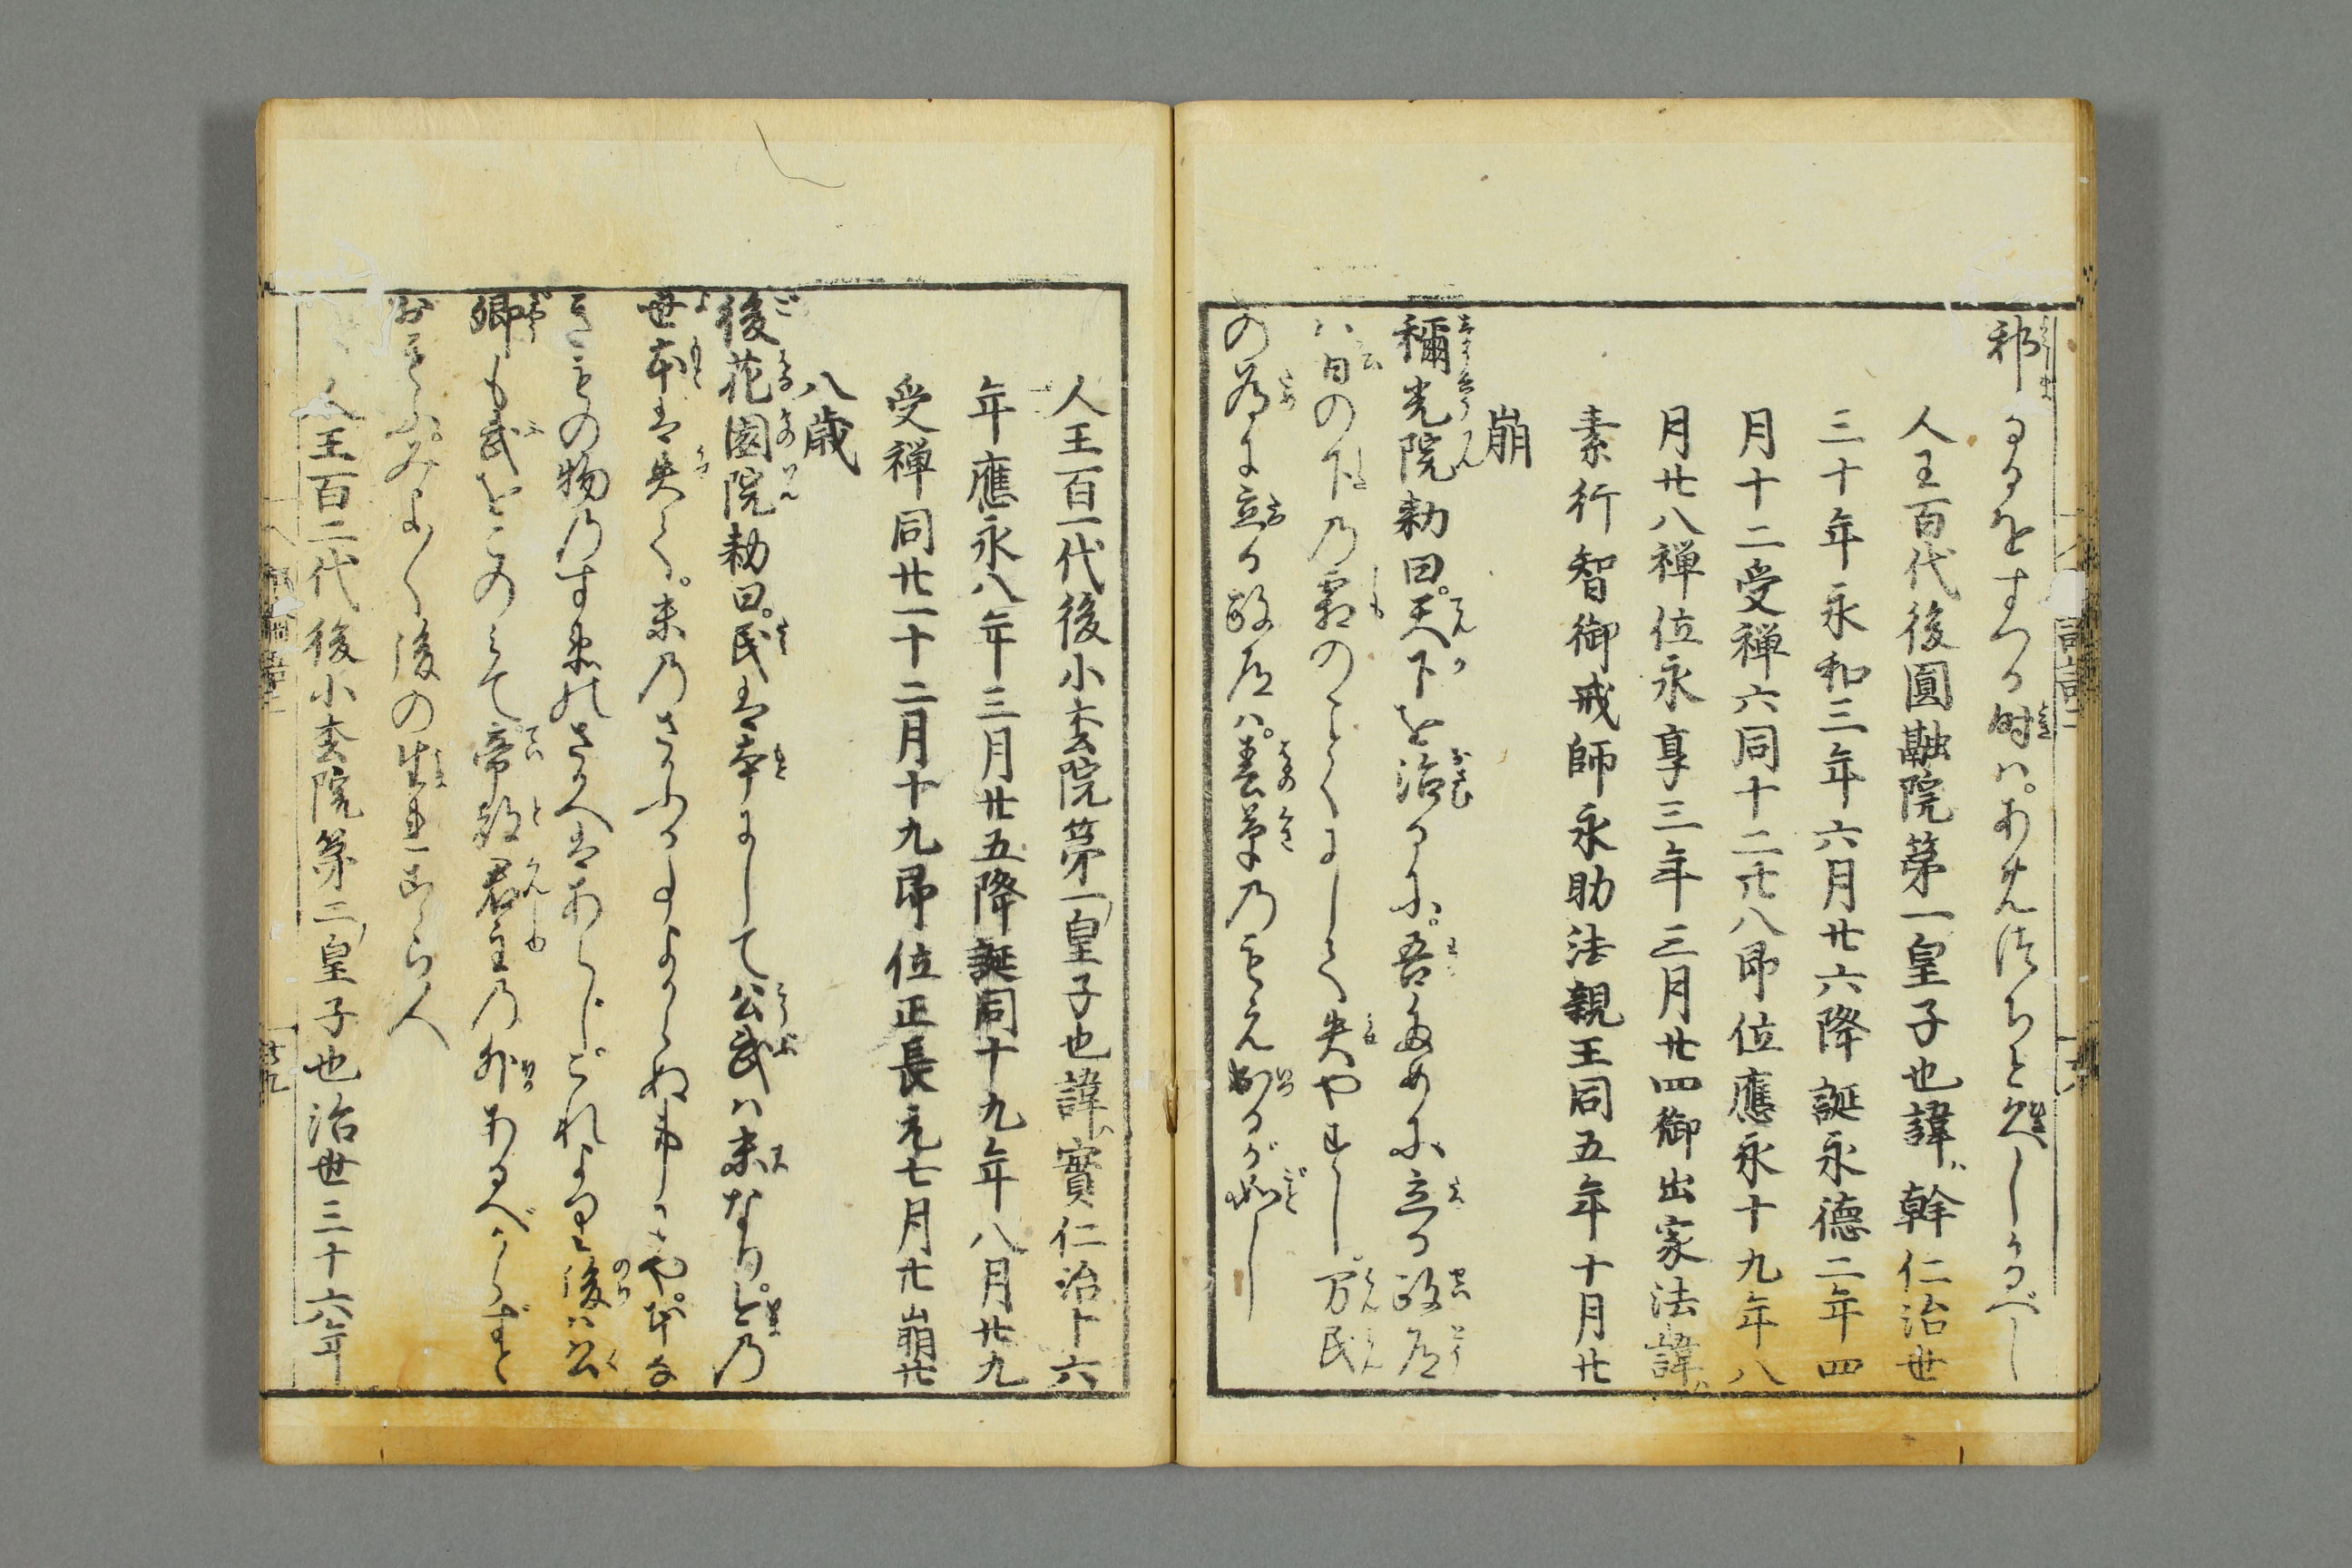 邪なるをすつる時ハ。あめつちと久しかるべし
人王百代後圓融院第一皇子也諱幹仁治世
三十年永和三年六月廿六降誕永德二年四
月十二受禅六同十二廿八卽位應永十九年八
月廿八禅位永享三年三月廿四御出家法諱
素行智御戒師永助法親王同五年十月廿
崩
稱光院勅曰。天下を治るに。吾ために立る政道
ハ日の下乃霜のことくにして失やすし万民
の為に立る政道ハ。春草乃もえ出るが如し
人王百一代後小松院第一皇子也諱實仁治卜六
年應永八年三月廿五降誕同十九年八月廿九
受禅同廿一十二月十九卽位正長元七月廿崩廿
八歳
後花園院勅曰。民は本にして公武ハ末なり。と乃
世本は失て。末乃さかふる事よからぬ事にや。本な
きもの物乃すゑのさかへはあらじ。これより後ハ公
卿も武をこのミて帝都君主乃外あるべからずと
おもふ。みよ〳〵後の生
人王百二代後小松院第二皇子也治世三十六年